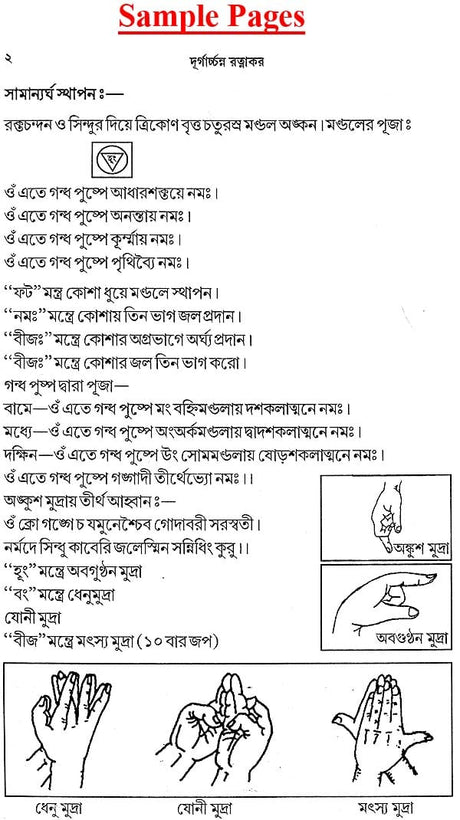 Sample Pages
২
দূর্গার্চ্চন রত্নাকর
সামান্যর্ঘ স্থাপন ঃ—
রক্তচন্দন ও সিন্দুর দিয়ে ত্রিকোণ বৃত্ত চতুরস্র মণ্ডল অঙ্কন। মণ্ডলের পূজা ঃ
হুং
ওঁ এতে গন্ধ পুষ্পে আধারশক্তয়ে নমঃ।
ওঁ এতে গন্ধ পুষ্পে অনন্তায় নমঃ।
ওঁ এতে গন্ধ পুষ্পে কূর্ম্মায় নমঃ।
ওঁ এতে গন্ধ পুষ্পে পৃথিব্যৈ নমঃ।
“ফট” মন্ত্র কোশা ধুয়ে মণ্ডলে স্থাপন।
“নমঃ” মন্ত্রে কোশায় তিন ভাগ জল প্রদান।
“বীজঃ” মন্ত্রে কোশার অগ্রভাগে অর্ঘ্য প্রদান।
“বীজঃ” মন্ত্রে কোশার জল তিন ভাগ করো।
গন্ধ পুষ্প দ্বারা পূজা—
বামে—ওঁ এতে গন্ধ পুষ্পে মং বহ্নিমণ্ডলায় দশকলাত্মনে নমঃ।
মধ্যে—ওঁ এতে গন্ধ পুষ্পে অংঅর্কমণ্ডলায় দ্বাদশকলাত্মনে নমঃ।
দক্ষিন—ওঁ এতে গন্ধ পুষ্পে উং সোমমণ্ডলায় ষোড়শকলাত্মনে নমঃ।
ওঁ এতে গন্ধ পুষ্পে গঙ্গাদী তীর্থেভ্যো নমঃ।।
অঙ্কুশ মুদ্রায় তীর্থ আহ্বান ঃ—
ওঁ ক্রো গঙ্গে চ যমুনেশ্চৈব গোদাবরী সরস্বতী।
নর্মদে সিন্ধু কাবেরি জলেস্মিন সন্নিধিং কুরু।।
“হূং” মন্ত্রে অবগুণ্ঠন মুদ্রা
“বং” মন্ত্রে ধেনুমুদ্রা
যোনী মুদ্রা
“বীজ” মন্ত্রে মৎস্য মুদ্রা (১০ বার জপ)
অঙ্কুশ মুদ্রা
অবগুণ্ঠন মুদ্রা
ধেনু মুদ্রা
যোনী মুদ্রা
মৎস্য মুদ্রা